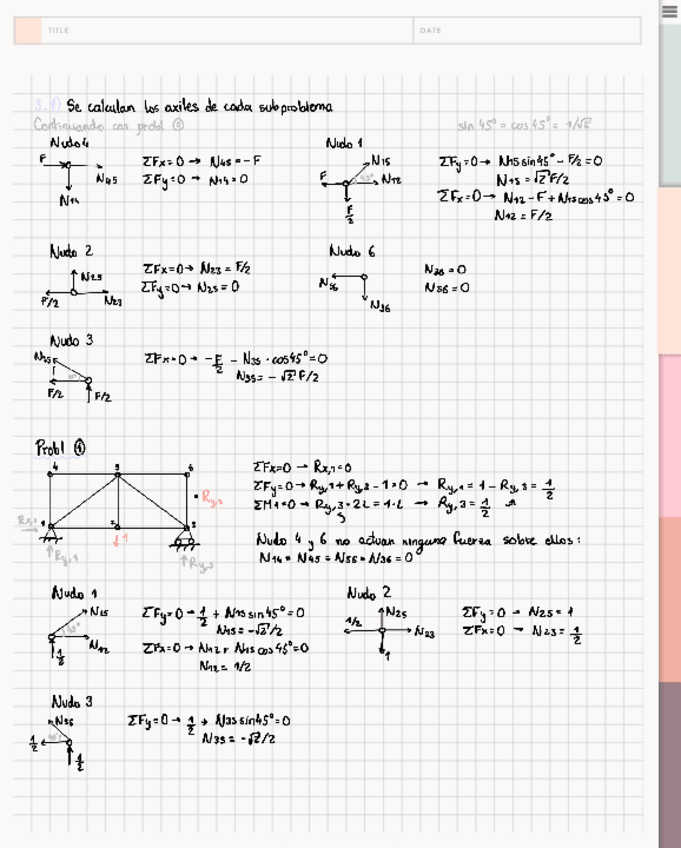 TITLE
DATE
3.1) Se calculan los axiles de cada subproblema
Continuando con probl ⓪
sin 45° = cos 45° = 1/√2
Nudo 4
F
N45
N14
ΣFx=0 → N45 = -F
ΣFy=0 → N14 = 0
Nudo 1
N15
45°
F
N12
F/2
ΣFy=0 → N15 sin45° - F/2 = 0
N15 = √2 F/2
ΣFx=0 → N12 - F + N15 cos 45° = 0
N12 = F/2
Nudo 2
N25
F/2
N23
ΣFx=0 → N23 = F/2
ΣFy=0 → N25 = 0
Nudo 6
N56
N36
N36 = 0
N56 = 0
Nudo 3
N35
F/2
F/2
ΣFx=0 → -F/2 - N35 · cos45° = 0
N35 = -√2 F/2
Probl ①
4
5
6
Rx,1
1
2
3
Ry,3
↓1
↑Ry,1
↑Ry,3
ΣFx=0 → Rx,1=0
ΣFy=0 → Ry,1 + Ry,3 - 1 = 0 → Ry,1 = 1 - Ry,3 = 1/2
ΣM1=0 → Ry,3 · 2L = 1·L → Ry,3 = 1/2
Nudo 4 y 6 no actuan ninguna fuerza sobre ellos:
N14 = N45 = N56 = N36 = 0
Nudo 1
N15
45°
N12
1/2
ΣFy=0 → 1/2 + N15 sin45° = 0
N15 = -√2/2
ΣFx=0 → N12 + N15 cos 45° = 0
N12 = 1/2
Nudo 2
N25
1/2
N23
1
ΣFy=0 → N25 = 1
ΣFx=0 → N23 = 1/2
Nudo 3
N35
1/2
1/2
ΣFy=0 → 1/2 + N35 sin45° = 0
N35 = -√2/2